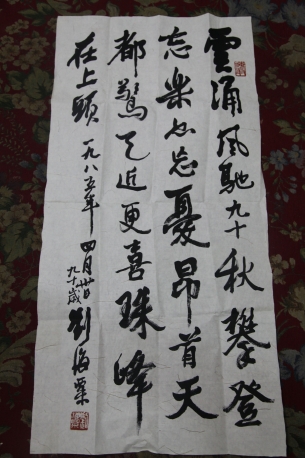 雲涌風馳九十秋攀登
忘樂也忘憂昂首天
都驚天近更喜珠峰
在上頭
一九八五年四月廿日
九十歲劉海粟